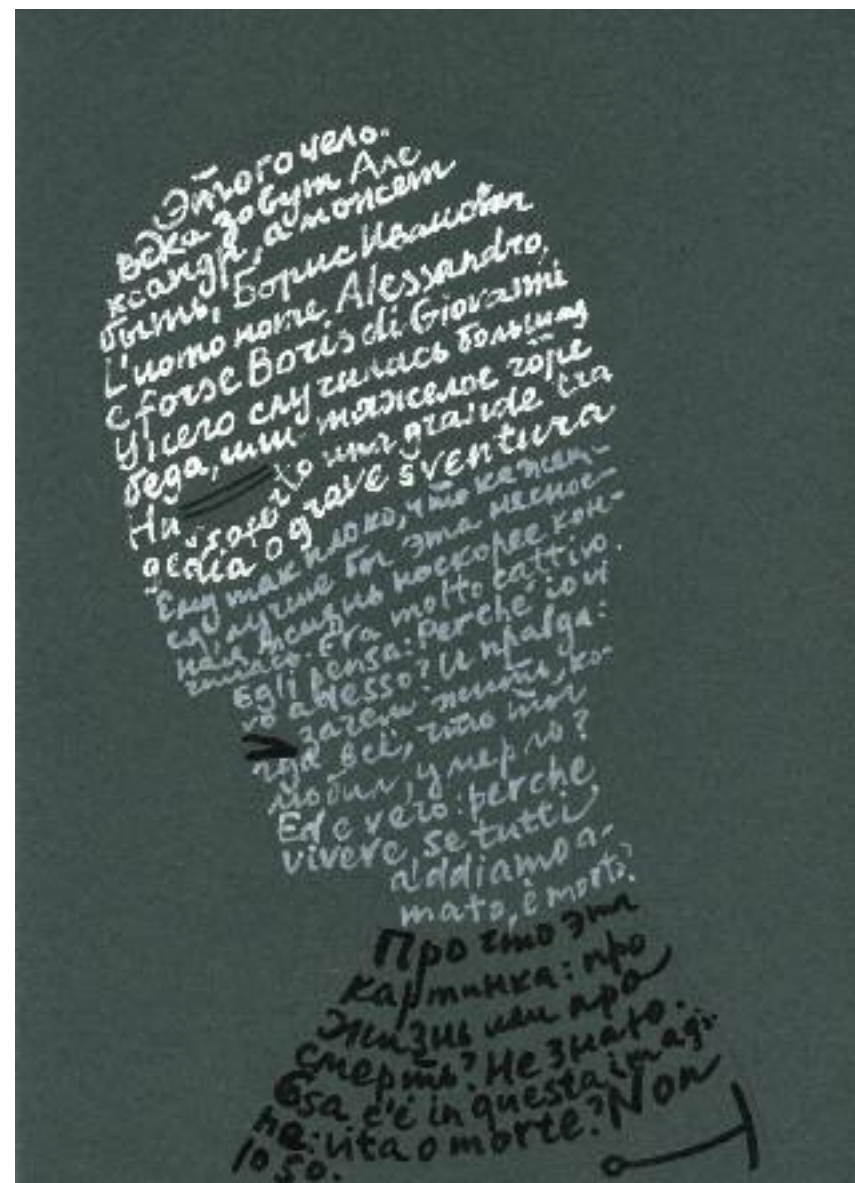 Этого чело-
века зовут Але
ксандр, а может
быть, Борис Иванович
L'uomo nome Alessandro,
e forse Boris di Giovanni
У него случилась большая
беда, или тяжелое горе
На una grande tra
gedia o grave sventura
Ему так плохо, что кажет-
ся, лучше бы эта неснос-
ная жизнь поскорее кон-
чилась. Era molto cattivo.
Egli pensa: Perche io vi
vo adesso? И правда:
зачем жить, ко-
гда всё, что ты
любил, умерло?
Ed e vero: perche
vivere, se tutti
abbiamo a-
mato, è morto?
Про что эта
картинка: про
жизнь или про
смерть? Не знаю.
Cosa c'è in questa imagi-
ne: vita o morte? Non
lo so.